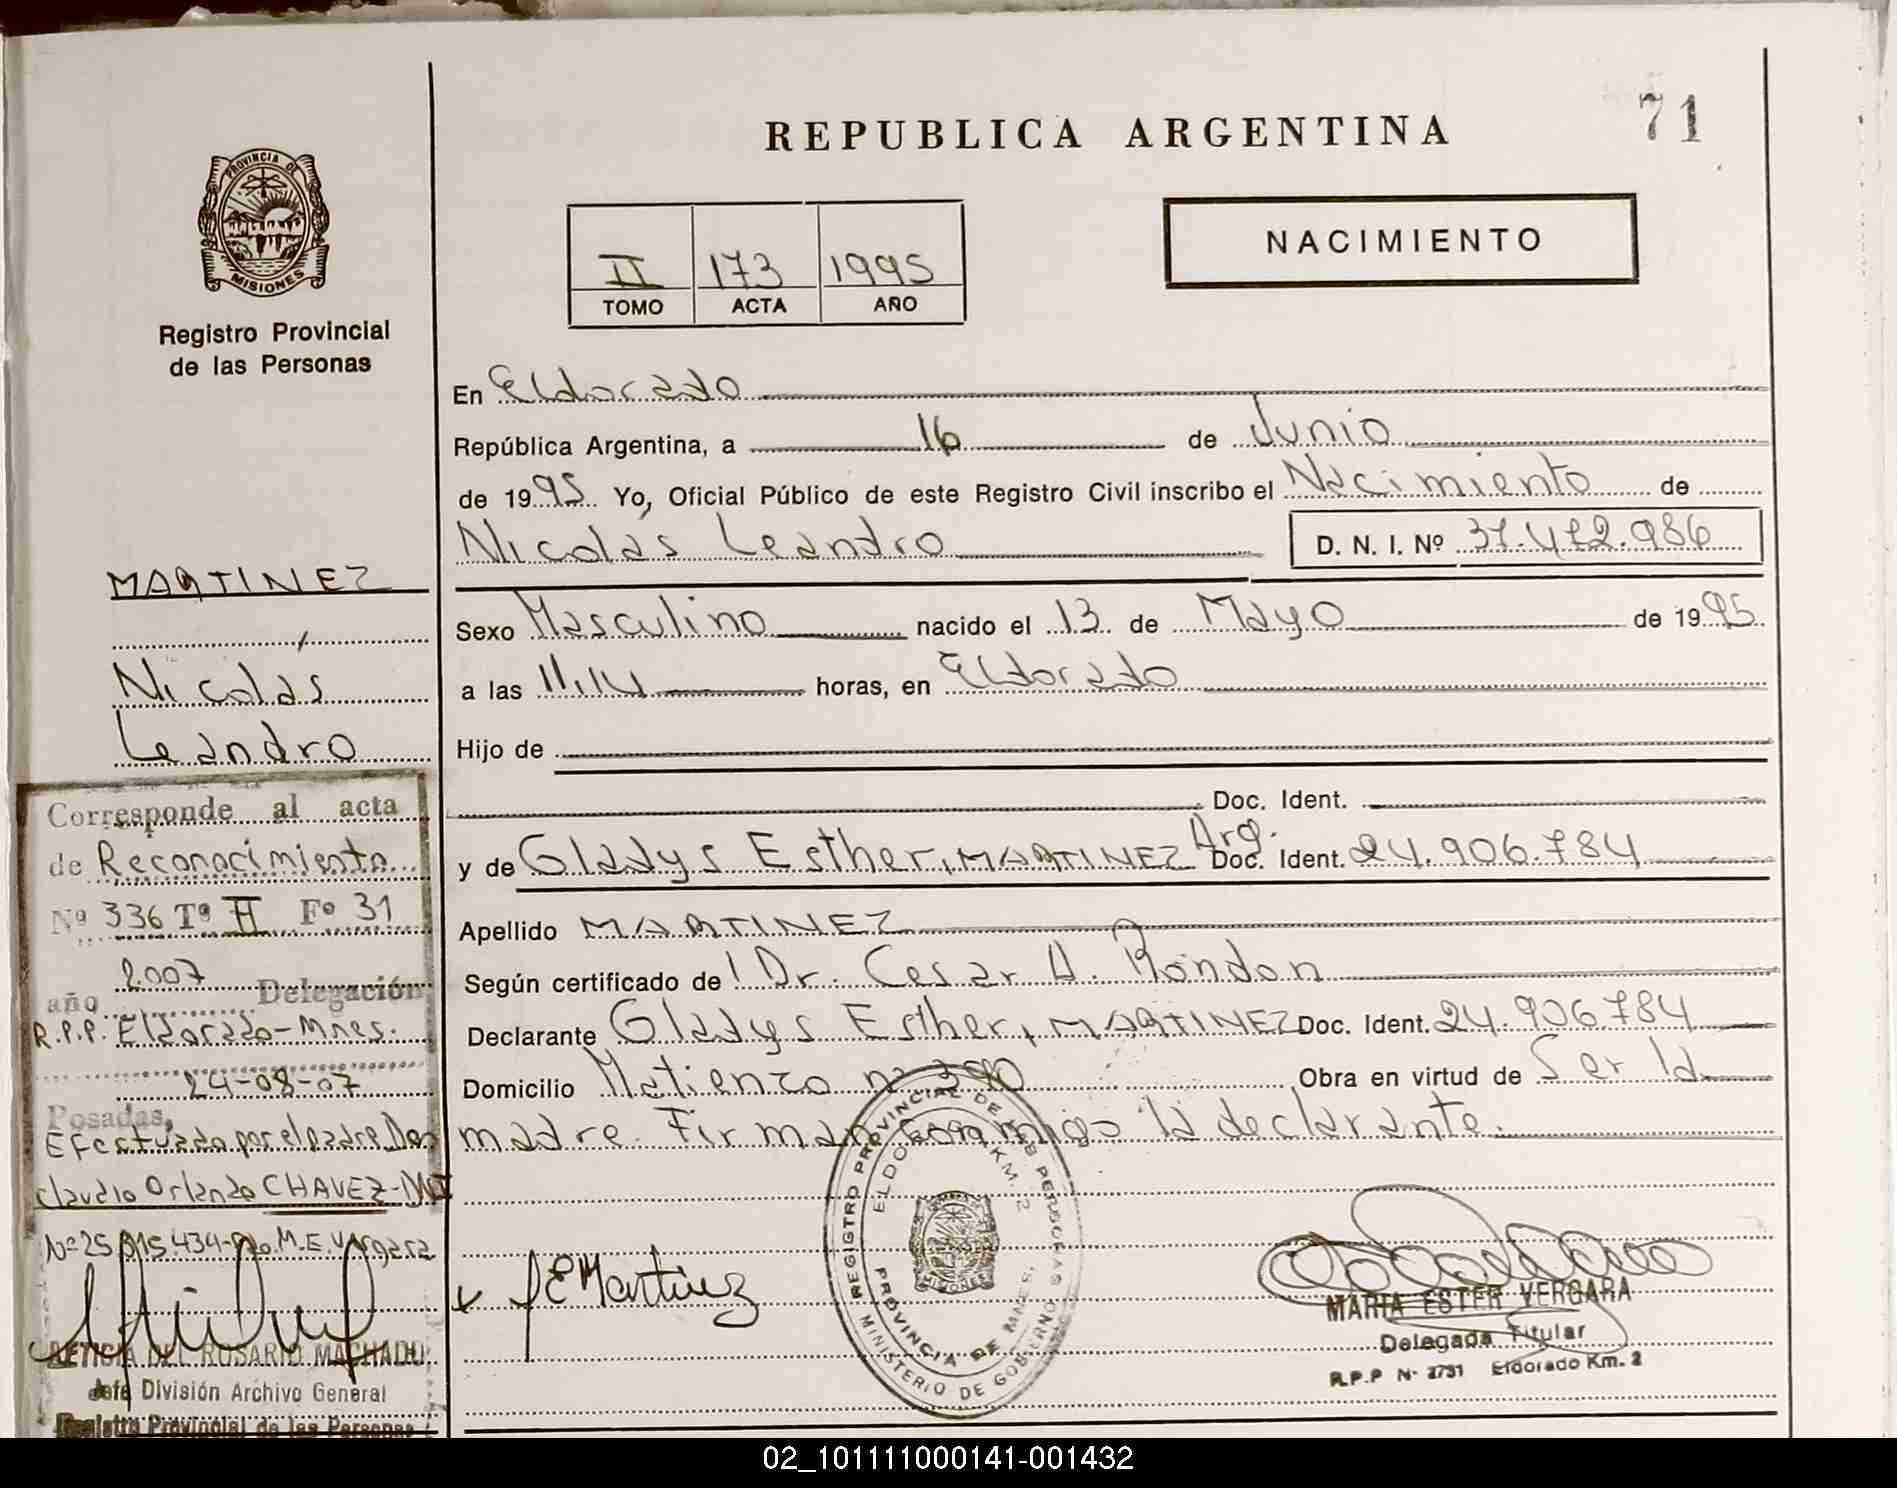 71
REPUBLICA ARGENTINA
PROVINCIA DE
MISIONES
Registro Provincial
de las Personas
II 173 1995
TOMO ACTA AÑO
NACIMIENTO
En Eldorado
República Argentina, a 16 de Junio
de 1995 Yo, Oficial Público de este Registro Civil inscribo el Nacimiento de
Nicolás Leandro D. N. I. Nº 37.472.986
Sexo Masculino nacido el 13 de Mayo de 1995
a las 11,14 horas, en Eldorado
Hijo de
Doc. Ident.
y de Gladys Esther, MARTINEZ Arg. Doc. Ident. 24.906.784
Apellido MARTINEZ
Según certificado de Dr. Cesar A. Rondon
Declarante Gladys Esther, MARTINEZ Doc. Ident. 24.906.784
Domicilio Matienzo nº 390 Obra en virtud de Ser la
madre. Firman conmigo la declarante.
MARTINEZ
Nicolás
Leandro
Corresponde al acta
de Reconocimiento
Nº 336 Tº II Fº 31
año 2007 Delegación
R.P.P. Eldorado-Mnes.
24-08-07
Posadas,
Efectuada por el padre Don
Claudio Orlando CHAVEZ-DNI
Nº 25.815.434- M.E. Vergara
LETICIA DEL ROSARIO MACHADO
Jefe División Archivo General
Registro Provincial de las Personas
G E Martinez
REGISTRO PROVINCIAL DE LAS PERSONAS
ELDORADO KM 2
PROVINCIA DE MNES.
MINISTERIO DE GOBIERNO
MISIONES
MARIA ESTER VERGARA
Delegada Titular
R.P.P Nº 2731 Eldorado Km. 2
02_101111000141-001432